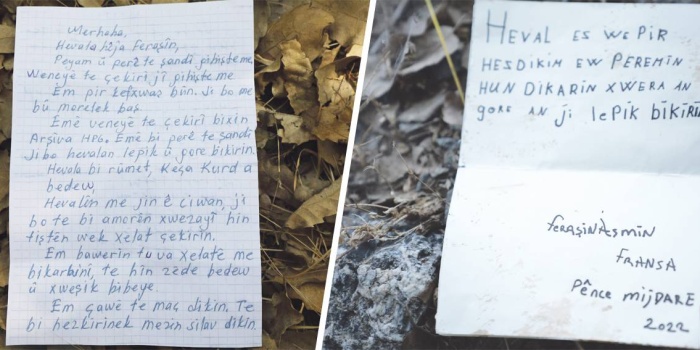 Merhaba,
Hevala hêja Feraşîn,
Peyam û perê te şandî pihişte me,
Weneyê te çêkirî jî pihişte me.
Em pir kêfxwaş bûn. Ji bo me
bû morelek baş.
Emê veneyê te çêkirî bixin
Arşîva HPG. Emê bi perê te şandî
Ji bo hevalan lepik û gore bikirin.
Hevala bi rûmet, Keça Kurd a
bedew,
Hevalên me jin ê ciwan, ji
bo te bi amorên xwezayî hin
tiştên wek xelat çêkirin.
Em bawerin tu va xelatê me
bikarbini, te hîn zêde bedew
û xweşik bibeye.
Em çavê te maç dikin. Te
bi hezkirinek mezin silav dikin.
HEVAL ES WE PIR
HESDIKIM EW PEREMÎN
HUN DIKARIN XWERA AN
gore AN Ji lePik BIKIRIN
feraşinAesmîN
FRANSA
Pênce mijDARE
2022